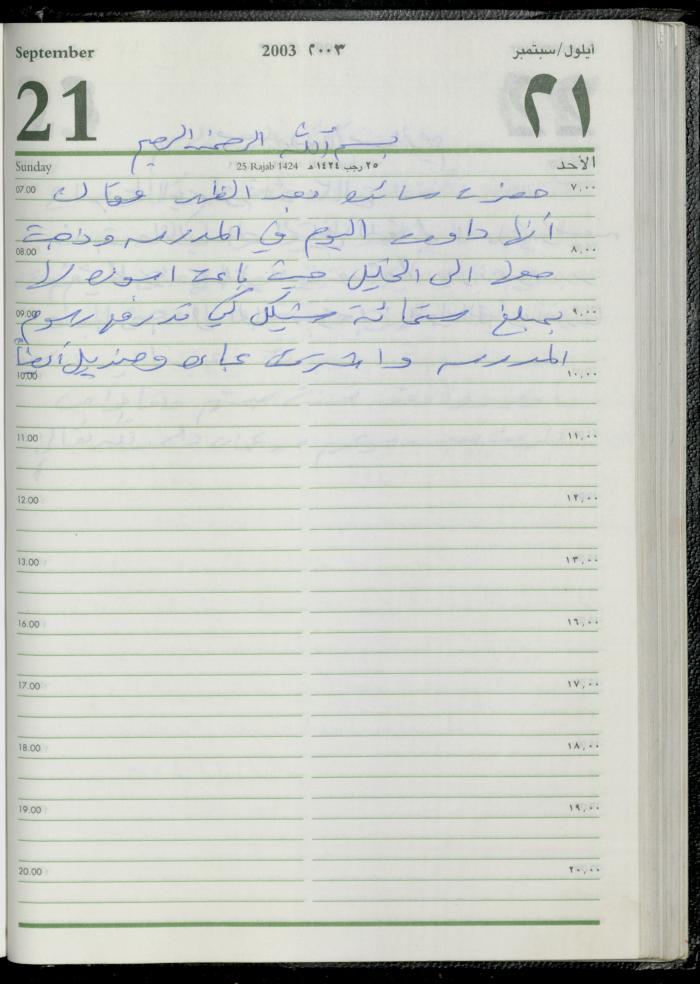 September 2003 ٢٠٠٣ أيلول/سبتمبر
21 ٢١
بسم الله الرحمن الرحيم
Sunday 25 Rajab 1424 ٢٥ رجب ١٤٢٤ هـ الأحد
07.00 حضرت بعد الظهر وقالت ٧,٠٠
أنها داومت اليوم في المدرسه وذهبت
08.00 ٨,٠٠
الى الخليل حيث باعت اسوره لها
09.00 بمبلغ ستمائة شيكل كي تدفع رسوم ٩,٠٠
المدرسه واشترت عباه ومنديل أيضاً
10.00 ١٠,٠٠
11.00 ١١,٠٠
12.00 ١٢,٠٠
13.00 ١٣,٠٠
16.00 ١٦,٠٠
17.00 ١٧,٠٠
18.00 ١٨,٠٠
19.00 ١٩,٠٠
20.00 ٢٠,٠٠